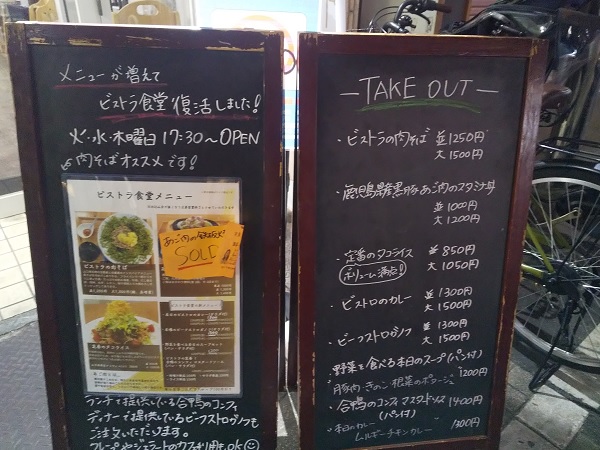 メニューが増えて
ビストラ食堂復活しました!
火・水・木曜日 17:30〜OPEN
肉そばオススメです!
ビストラ食堂メニュー
ビストラの肉そば
あご肉の鉄板焼
SOLD
定番のタコライス
ランチで提供している合鴨のコンフィ
ディナーで提供しているビーフストロガノフも
ご注文いただけます。
クレープやジェラートのカフェ利用もOK
ーTAKE OUTー
・ビストラの肉そば 並1250円
大1500円
・鹿児島県産黒豚あご肉のスタミナ丼
並1000円
大1200円
・定番のタコライス 並850円
ボリューム満点! 大1050円
・ビストロのカレー 並1300円
大1500円
・ビーフストロガノフ 並1300円
大1500円
・野菜を食べる本日のスープ(パン付)
豚肉・きのこ・根菜のポタージュ 1200円
・合鴨のコンフィ マスタードソース 1400円
(パン付)
・本日のカレー
ムルギーチキンカレー 1300円